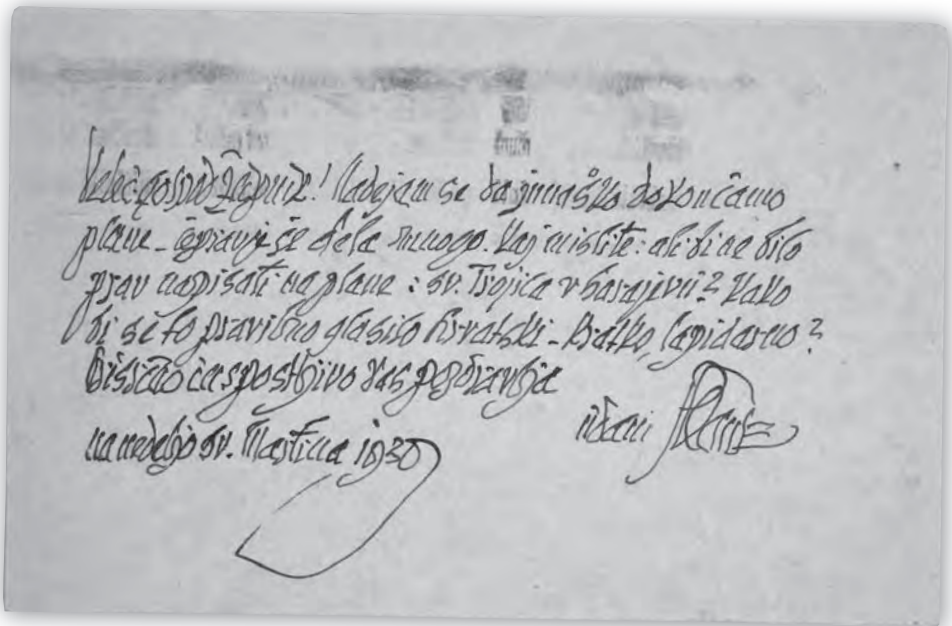 Veleč. gospod župnik! Nadejam se da jim aško dokončamo
plane – še dela mnogo. Kaj mislite: ali bi ne bilo
prav napisati na plane: sv. Trojica v Sarajevu? Kako
bi se to pravilno glasilo hrvatski – kratko, lapidarno?
spoštljivo Vas pozdravlja
na nedeljo sv. Martina 1930 vdani